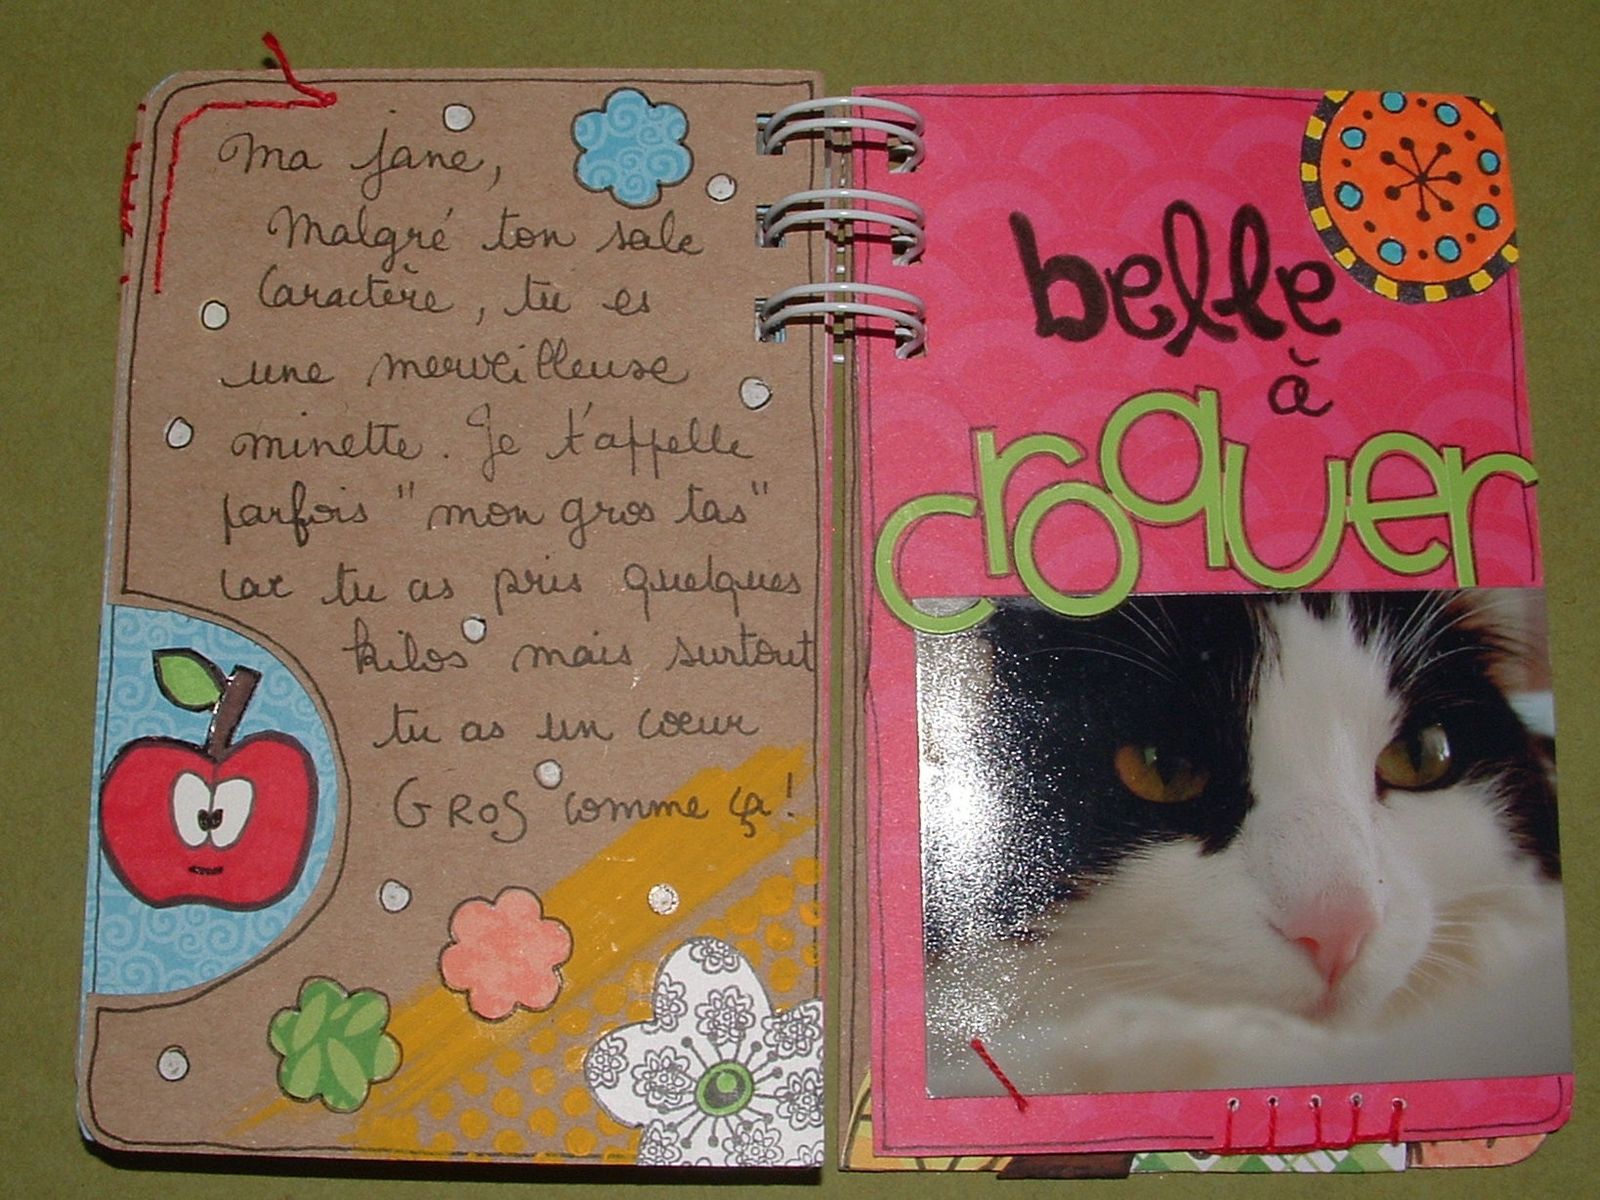 Ma jane,
Malgré ton sale
Caractère, tu es
une merveilleuse
minette. Je t'appelle
parfois "mon gros tas"
car tu as pris quelques
kilos mais surtout
tu as un coeur
GROS comme ça!
belle
à
croquer